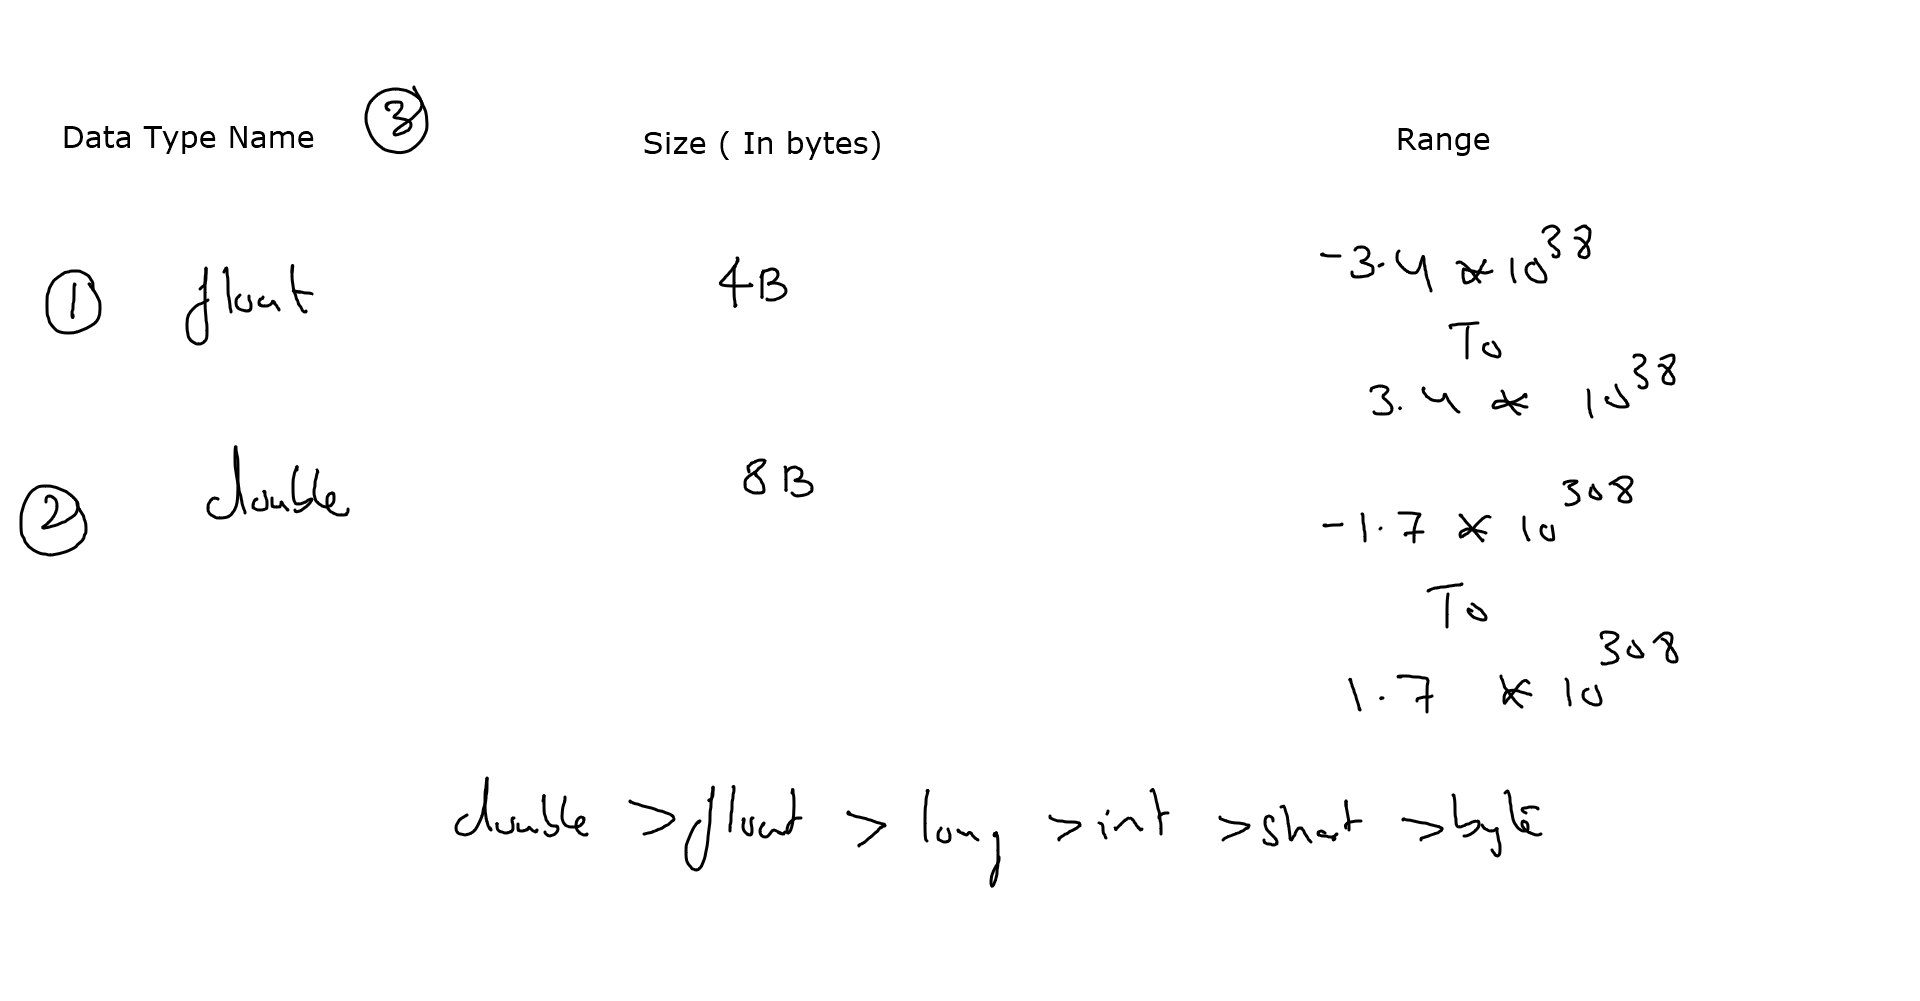 Data Type Name ③ Size ( In bytes) Range
① float 4B -3.4 * 10^38
To
3.4 * 10^38
② double 8B -1.7 * 10^308
To
1.7 * 10^308
double > float > long > int > short > byte